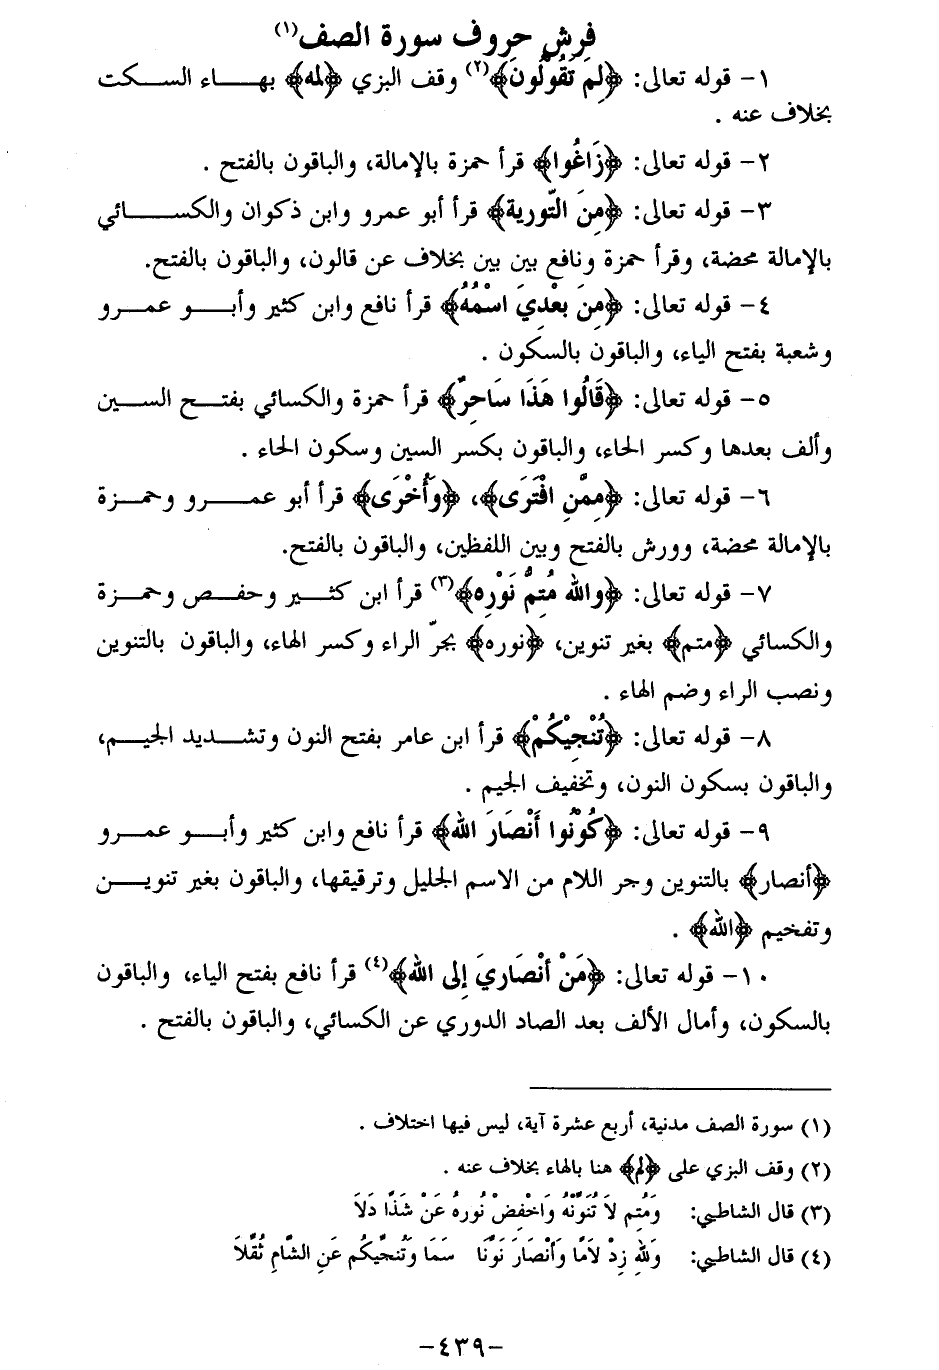 فرش حروف سورة الصف(١)
١- قوله تعالى: ﴿لِمَ تَقُولُونَ﴾(٢) وقف البزي ﴿لمه﴾ بهاء السكت
بخلاف عنه .
٢- قوله تعالى: ﴿زَاغُوا﴾ قرأ حمزة بالإمالة، والباقون بالفتح .
٣- قوله تعالى: ﴿مِنَ التَّورية﴾ قرأ أبو عمرو وابن ذكوان والكسائي
بالإمالة محضة، وقرأ حمزة ونافع بين بين بخلاف عن قالون، والباقون بالفتح.
٤- قوله تعالى: ﴿مِنَ بَعْدِيَ اسْمُهُ﴾ قرأ نافع وابن كثير وأبو عمرو
وشعبة بفتح الياء، والباقون بالسكون .
٥- قوله تعالى: ﴿قَالُوا هَذَا سَاحِرٌ﴾ قرأ حمزة والكسائي بفتح السين
وألف بعدها وكسر الحاء، والباقون بكسر السين وسكون الحاء .
٦- قوله تعالى: ﴿مِمَّنِ افْتَرَى﴾، ﴿وَأُخْرَى﴾ قرأ أبو عمرو وحمزة
بالإمالة محضة، وورش بالفتح وبين اللفظين، والباقون بالفتح.
٧- قوله تعالى: ﴿والله مُتِمُّ نَوْرِه﴾(٣) قرأ ابن كثير وحفص وحمزة
والكسائي ﴿متم﴾ بغير تنوين، ﴿نوره﴾ بجرّ الراء وكسر الهاء، والباقون بالتنوين
ونصب الراء وضم الهاء .
٨- قوله تعالى: ﴿تُنْجِيْكُمْ﴾ قرأ ابن عامر بفتح النون وتشديد الجيم،
والباقون بسكون النون، وتخفيف الجيم .
٩- قوله تعالى: ﴿كُوْنُوا أَنْصَارَ الله﴾ قرأ نافع وابن كثير وأبو عمرو
﴿أنصار﴾ بالتنوين وجر اللام من الاسم الجليل وترقيقها، والباقون بغير تنوين
وتفخيم ﴿الله﴾ .
١٠- قوله تعالى: ﴿مَنْ أَنْصَارِيَ إِلى الله﴾(٤) قرأ نافع بفتح الياء، والباقون
بالسكون، وأمال الألف بعد الصاد الدوري عن الكسائي، والباقون بالفتح .
(١) سورة الصف مدنية، أربع عشرة آية، ليس فيها اختلاف .
(٢) وقف البزي على ﴿لم﴾ هنا بالهاء بخلاف عنه .
(٣) قال الشاطبي: وَمُتِم لاَ تُنَوِّنْهُ وَاخْفِضْ نُورهُ عَنْ شَذًا دَلاَ
(٤) قال الشاطبي: وَللهِ زِدْ لاَمًا وَأَنْصَارَ نَوِّنَا سَمَا وَتُنَجِّيكُم عَنِ الشَّامِ ثُقِّلاَ
-٤٣٩-